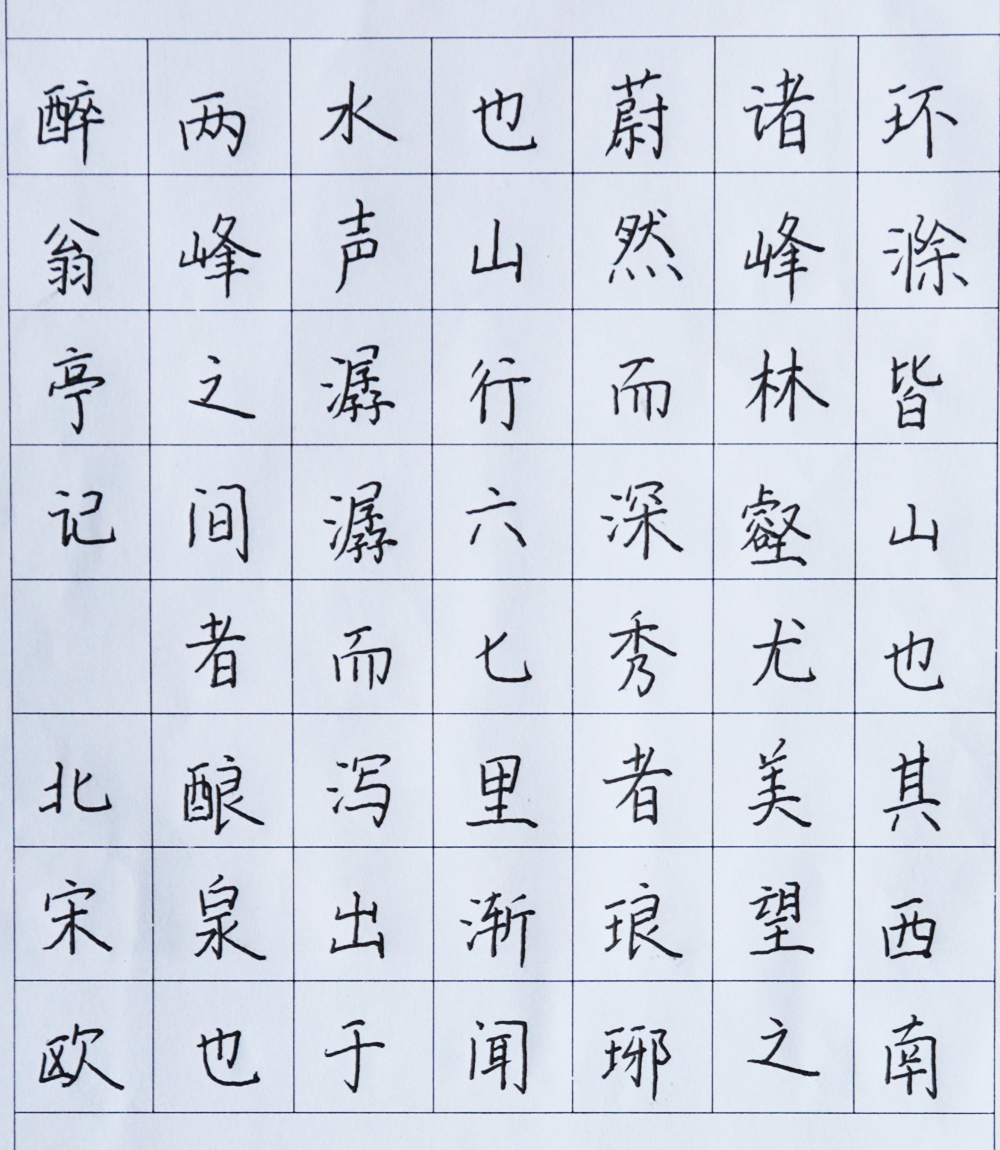 环滁皆山也其西南
诸峰林壑尤美望之
蔚然而深秀者琅琊
也山行六七里渐闻
水声潺潺而泻出于
两峰之间者酿泉也
醉翁亭记 北宋欧